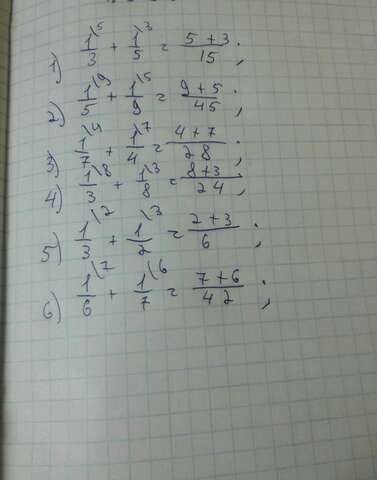 1) 1/3\5 + 1/5\3 = (5+3)/15;
2) 1/5\9 + 1/9\5 = (9+5)/45;
3) 1/7\4 + 1/4\7 = (4+7)/28;
4) 1/3\8 + 1/8\3 = (8+3)/24;
5) 1/3\2 + 1/2\3 = (2+3)/6;
6) 1/6\7 + 1/7\6 = (7+6)/42;